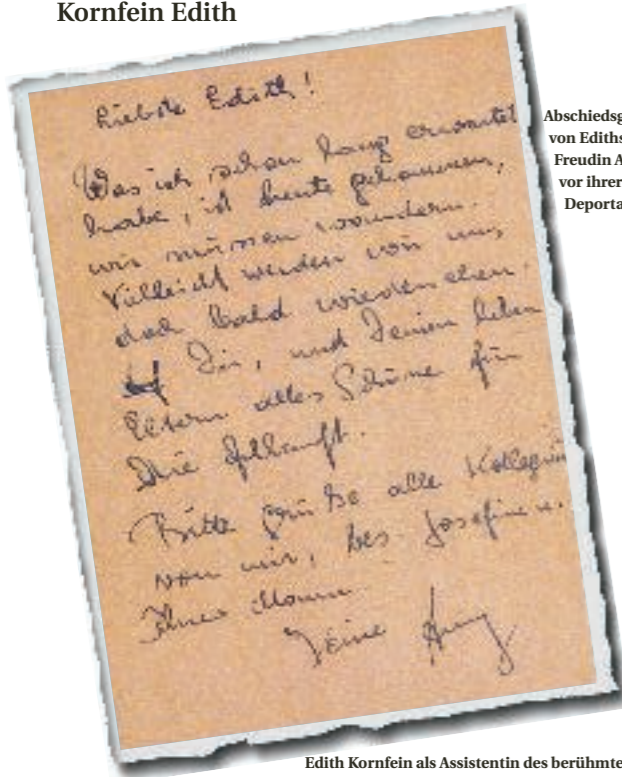 Kornfein Edith
Liebste Edith!
Was ich schon lang erwartet
habe, ist heute gekommen,
wir müssen wandern.
Vielleicht werden wir uns
doch bald wiedersehen.
Dir, und Deinen lieben
Eltern alles Schöne für
Die Zukunft.
Bitte grüße alle Kollegin
von mir, bes. Josefine u.
Ihren Mann
Deine
Abschiedsg
von Ediths
Freudin A
vor ihrer
Deporta
Edith Kornfein als Assistentin des berühmte